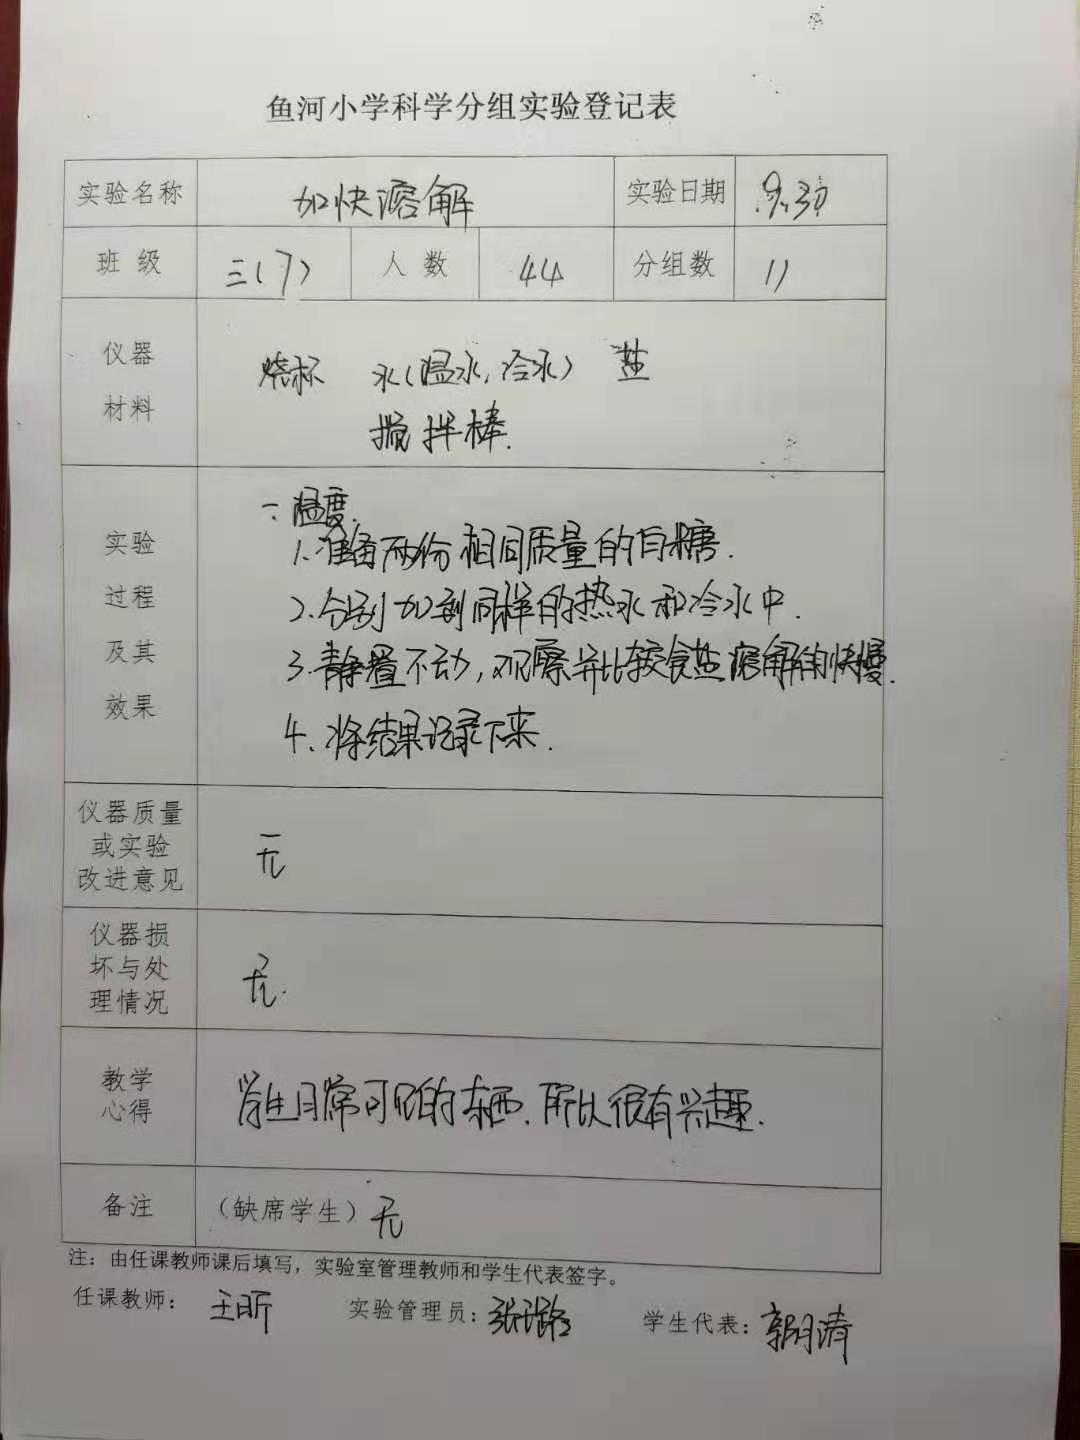 鱼河小学科学分组实验登记表
实验名称 加快溶解 实验日期 9.30
班 级 三(7) 人 数 44 分组数 11
仪器
材料
烧杯 水(温水,冷水) 盐
搅拌棒.
实验
过程
及其
效果
一、温度.
1.准备两份相同质量的白糖.
2.分别加到同样的热水和冷水中.
3.静置不动,观察并比较食盐溶解的快慢.
4、将结果记录下来.
仪器质量
或实验
改进意见
无
仪器损
坏与处
理情况
无.
教学
心得
学生日常可见的东西.所以很有兴趣.
备注 (缺席学生) 无
注:由任课教师课后填写,实验室管理教师和学生代表签字。
任课教师: 王昕 实验管理员: 张 学生代表: 郭 涛